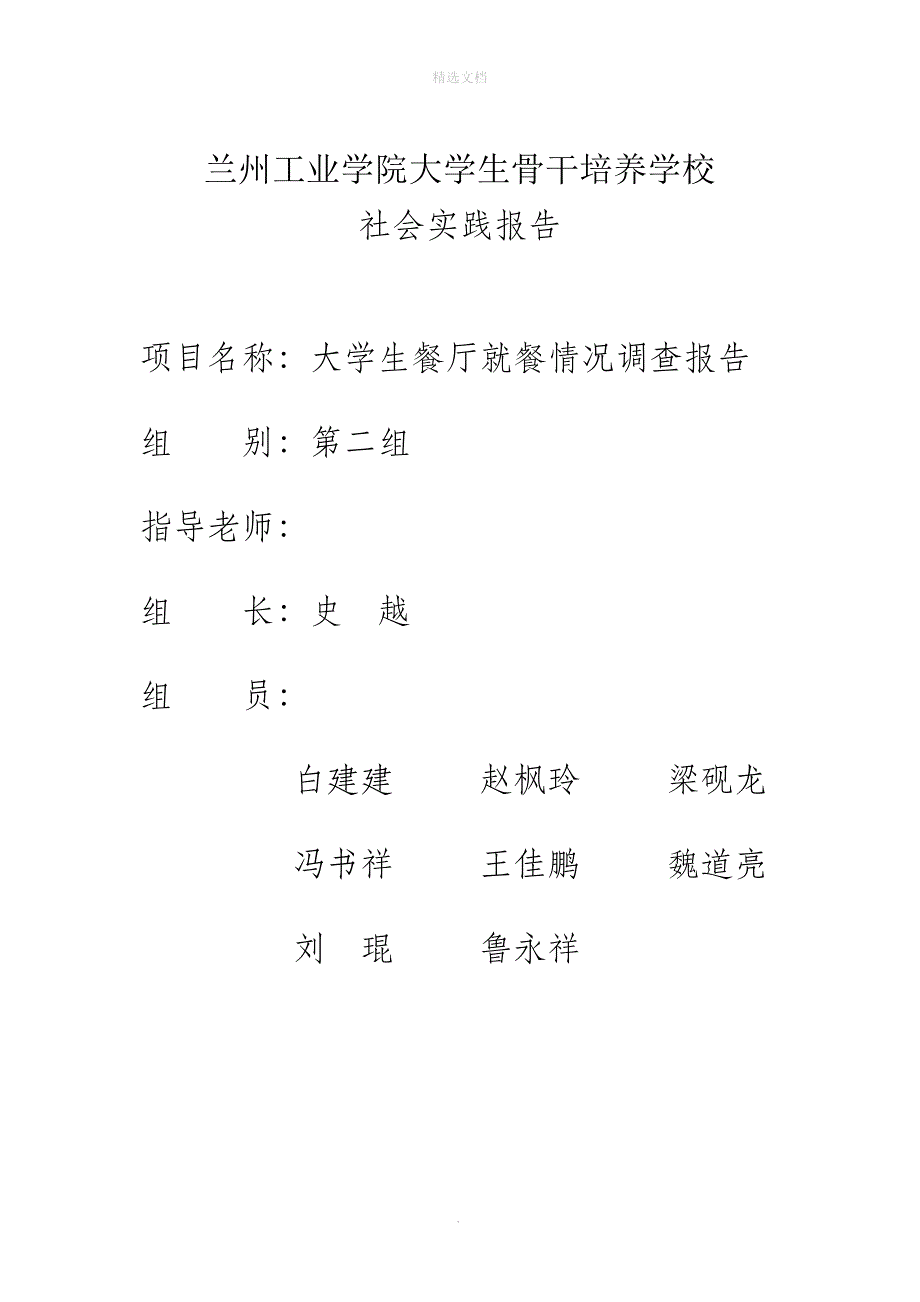 精选文档
兰州工业学院大学生骨干培养学校
社会实践报告
项目名称：大学生餐厅就餐情况调查报告
组　　别：第二组
指导老师：
组　　长：史　越
组　　员：
白建建　赵枫玲　梁砚龙
冯书祥　王佳鹏　魏道亮
刘　琨　鲁永祥
.